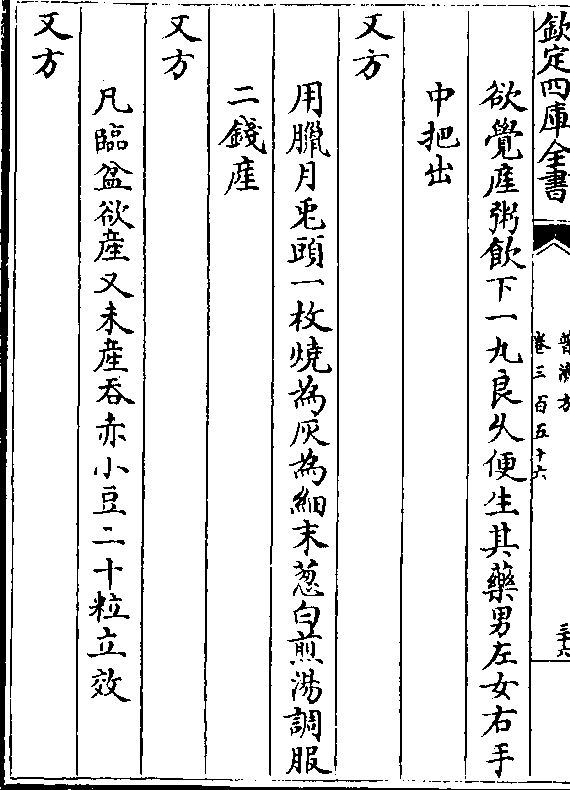 欽定四庫全書
普濟方
卷三百五十六
三十六
欲覺産粥飲下一丸良久便生其藥男左女右手
中把出
又方
用臘月兎頭一枚燒為灰為細末葱白煎湯調服
二錢産
又方
凡臨盆欲産又未産吞赤小豆二十粒立效
又方